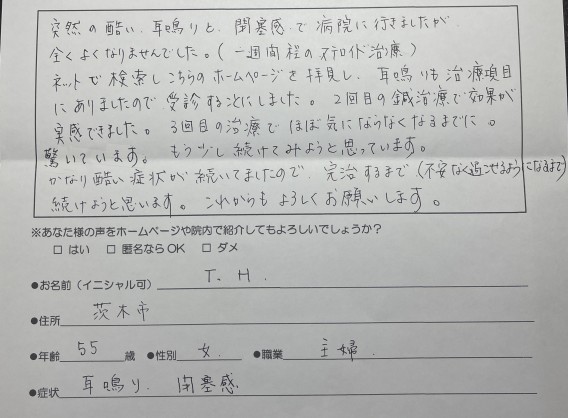 突然の酷い、耳鳴りと、閉塞感で病院に行きましたが、
全くよくなりませんでした。(一週間程のステロイド治療)
ネットで検索しこちらのホームページを拝見し、耳鳴りも治療項目
にありましたので受診することにしました。2回目の鍼治療で効果が
実感できました。3回目の治療でほぼ気にならなくなるまでに。
驚いています。もう少し続けてみようと思っています。
かなり酷い症状が続いてましたので、完治するまで(不安なく過ごせるようになるまで)
続けようと思います。これからもよろしくお願いします。
※あなた様の声をホームページや院内で紹介してもよろしいでしょうか?
□ はい □ 匿名ならOK □ ダメ
●お名前(イニシャル可) T. H.
●住所 茨木市
●年齢 55 歳 ●性別 女. ●職業 主婦.
●症状 耳鳴り、閉塞感.